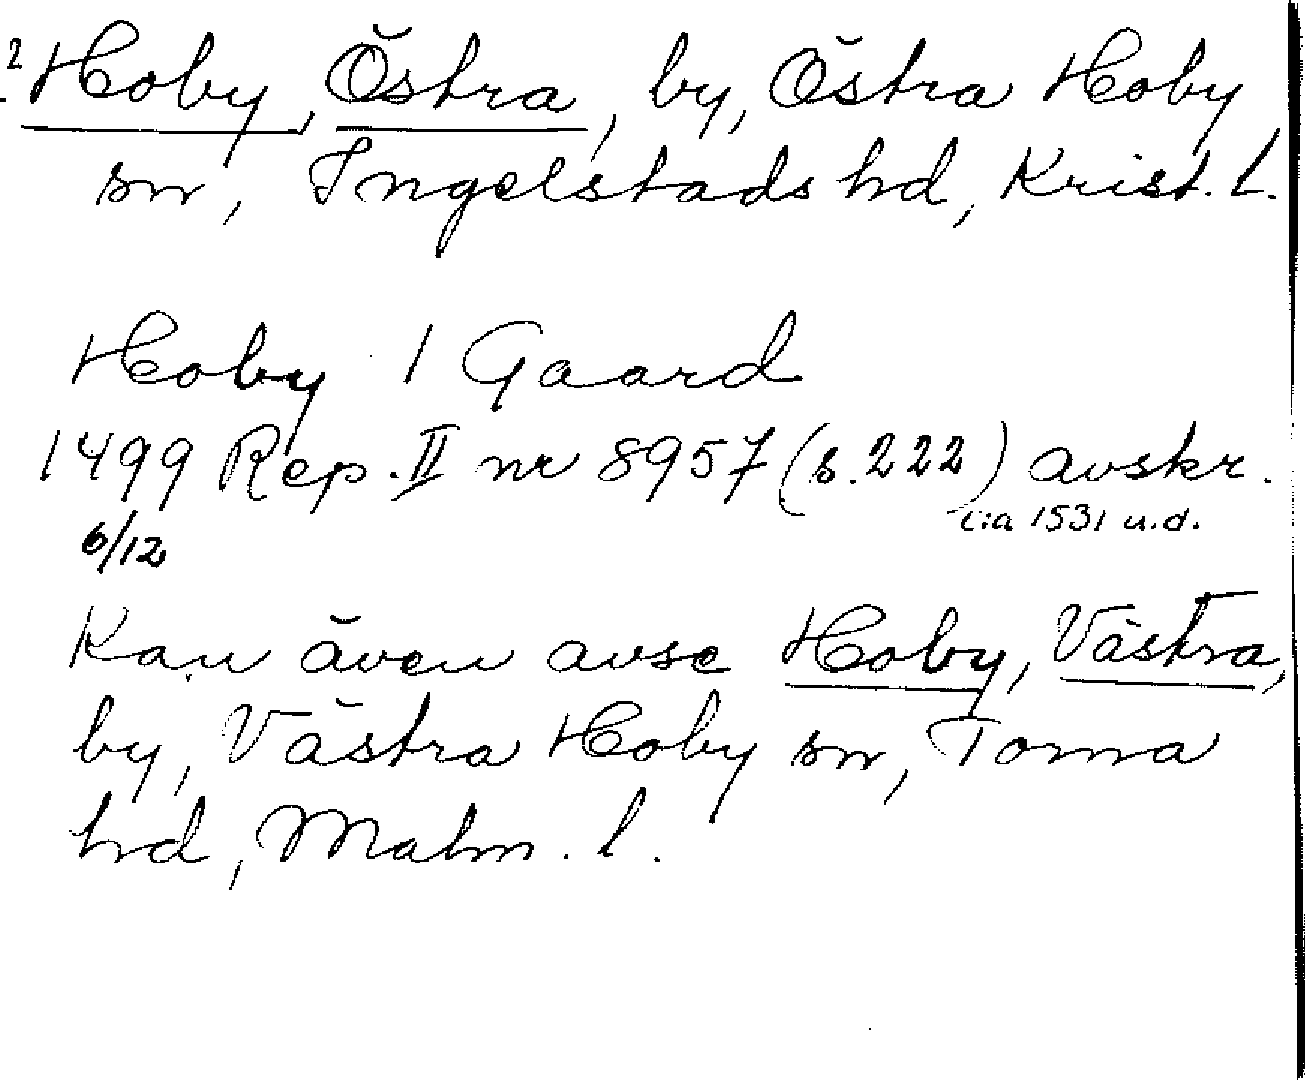 2 Hoby, Östra, by, Östra Hoby
sn, Ingelstads hd, Krist. l.
Hoby 1 Gaard
1499 Rep. II nr 8957 (s. 222) avskr.
6/12 c:a 1531 u.d.
Kan även avse Hoby, Västra,
by, Västra Hoby sn, Torna
hd, Malm. l.